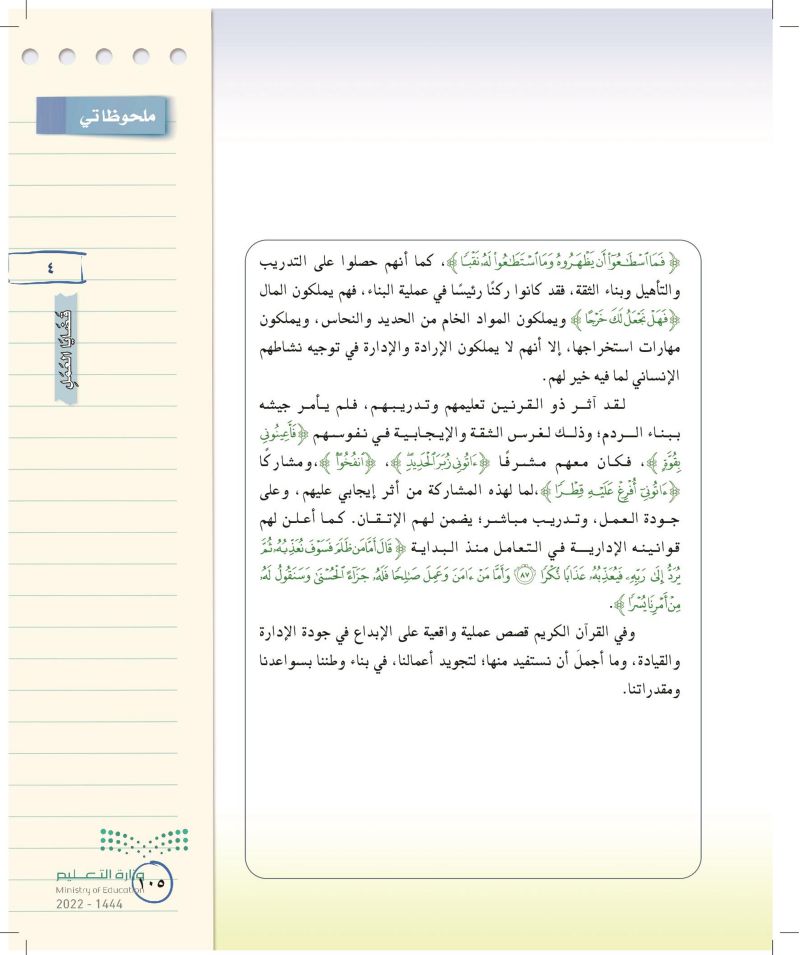 ملحوظاتي
٤
قضايا العمل
﴿ فَمَا ٱسْطَٰعُوٓا۟ أَن يَظْهَرُوهُ وَمَا ٱسْتَطَٰعُوا۟ لَهُۥ نَقْبًا ﴾، كما أنهم حصلوا على التدريب
والتأهيل وبناء الثقة، فقد كانوا ركنًا رئيسًا في عملية البناء، فهم يملكون المال
﴿فَهَلْ نَجْعَلُ لَكَ خَرْجًا﴾ ويملكون المواد الخام من الحديد والنحاس، ويملكون
مهارات استخراجها، إلا أنهم لا يملكون الإرادة والإدارة في توجيه نشاطهم
الإنساني لما فيه خير لهم.
لقد آثر ذو القرنين تعليمهم وتدريبهم، فلم يأمر جيشه
ببناء الردم؛ وذلك لغرس الثقة والإيجابية في نفوسهم ﴿فَأَعِينُونِى
بِقُوَّةٍ ﴾، فكان معهم مشرفًا ﴿ءَاتُونِى زُبَرَ ٱلْحَدِيدِ ﴾، ﴿ٱنفُخُوا۟ ﴾،ومشاركًا
﴿ءَاتُونِىٓ أُفْرِغْ عَلَيْهِ قِطْرًا ﴾،لما لهذه المشاركة من أثر إيجابي عليهم، وعلى
جودة العمل، وتدريب مباشر؛ يضمن لهم الإتقان. كما أعلن لهم
قوانينه الإدارية في التعامل منذ البداية ﴿ قَالَ أَمَّا مَن ظَلَمَ فَسَوْفَ نُعَذِّبُهُۥ ثُمَّ
يُرَدُّ إِلَىٰ رَبِّهِۦ فَيُعَذِّبُهُۥ عَذَابًا نُّكْرًا ٨٧ وَأَمَّا مَنْ ءَامَنَ وَعَمِلَ صَٰلِحًا فَلَهُۥ جَزَآءً ٱلْحُسْنَىٰ وَسَنَقُولُ لَهُۥ
مِنْ أَمْرِنَا يُسْرًا ﴾.
وفي القرآن الكريم قصص عملية واقعية على الإبداع في جودة الإدارة
والقيادة، وما أجملَ أن نستفيد منها؛ لتجويد أعمالنا، في بناء وطننا بسواعدنا
ومقدراتنا.
وزارة التعليم
Ministry of Education
2022 - 1444
١٠٥